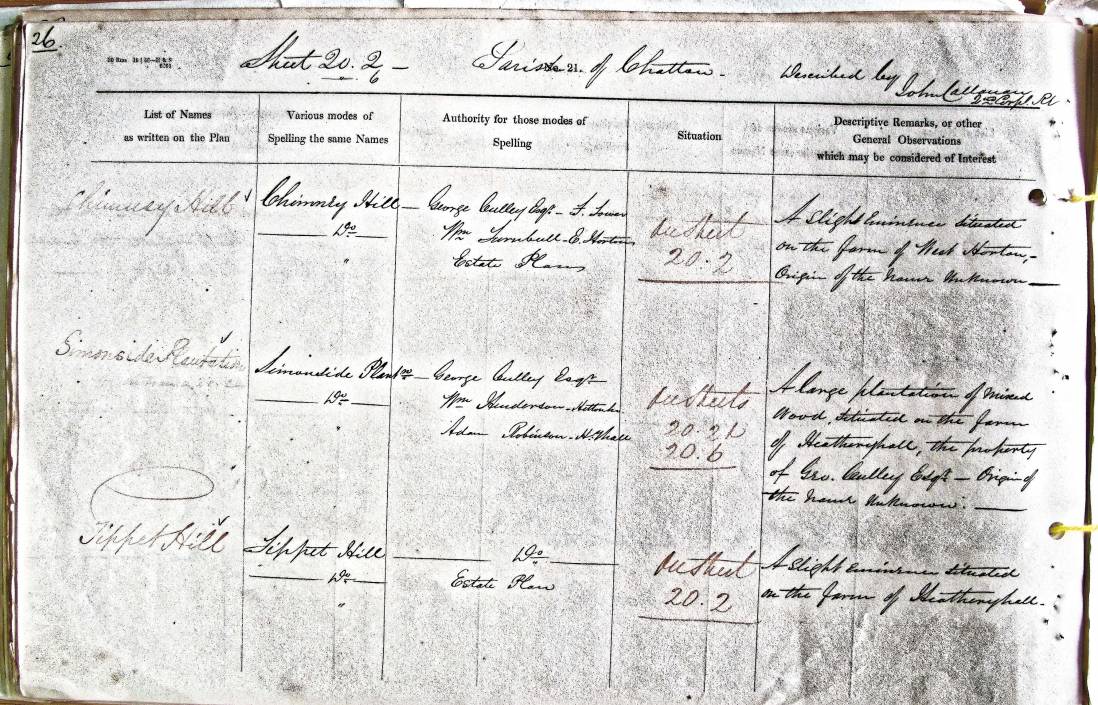 26.
Sheet 20. 2
6
Parish No. 21. of Chatton.
Described by
John Callanan
2nd Corpl RE
List of Names
as written on the Plan
Various modes of
Spelling the same Names
Authority for those modes of
Spelling
Situation
Descriptive Remarks, or other
General Observations
which may be considered of Interest
Chimney Hill
Chimney Hill
Do
"
George Culley Esqr - F. Tower
Wm Turnbull - E. Horton
Estate Plans
On Sheet
20. 2
A Slight Eminence Situated
on the farm of West Horton, -
Origin of the Name Unknown
Simonside Plantation
Simonside Plantn
Do
"
George Culley Esqr
Wm Henderson -
Adam Robinson - H. Hall
On Sheets
20. 2 &
20. 6
A large plantation of Mixed
Wood, Situated on the farm
of Heatheryhall, the property
of Geo. Culley Esqr - Origin of
the Name Unknown.
Tippet Hill
Tippet Hill
Do
"
Do
Estate Plan
On Sheet
20. 2
A Slight eminence Situated
on the farm of Heatheryhall.